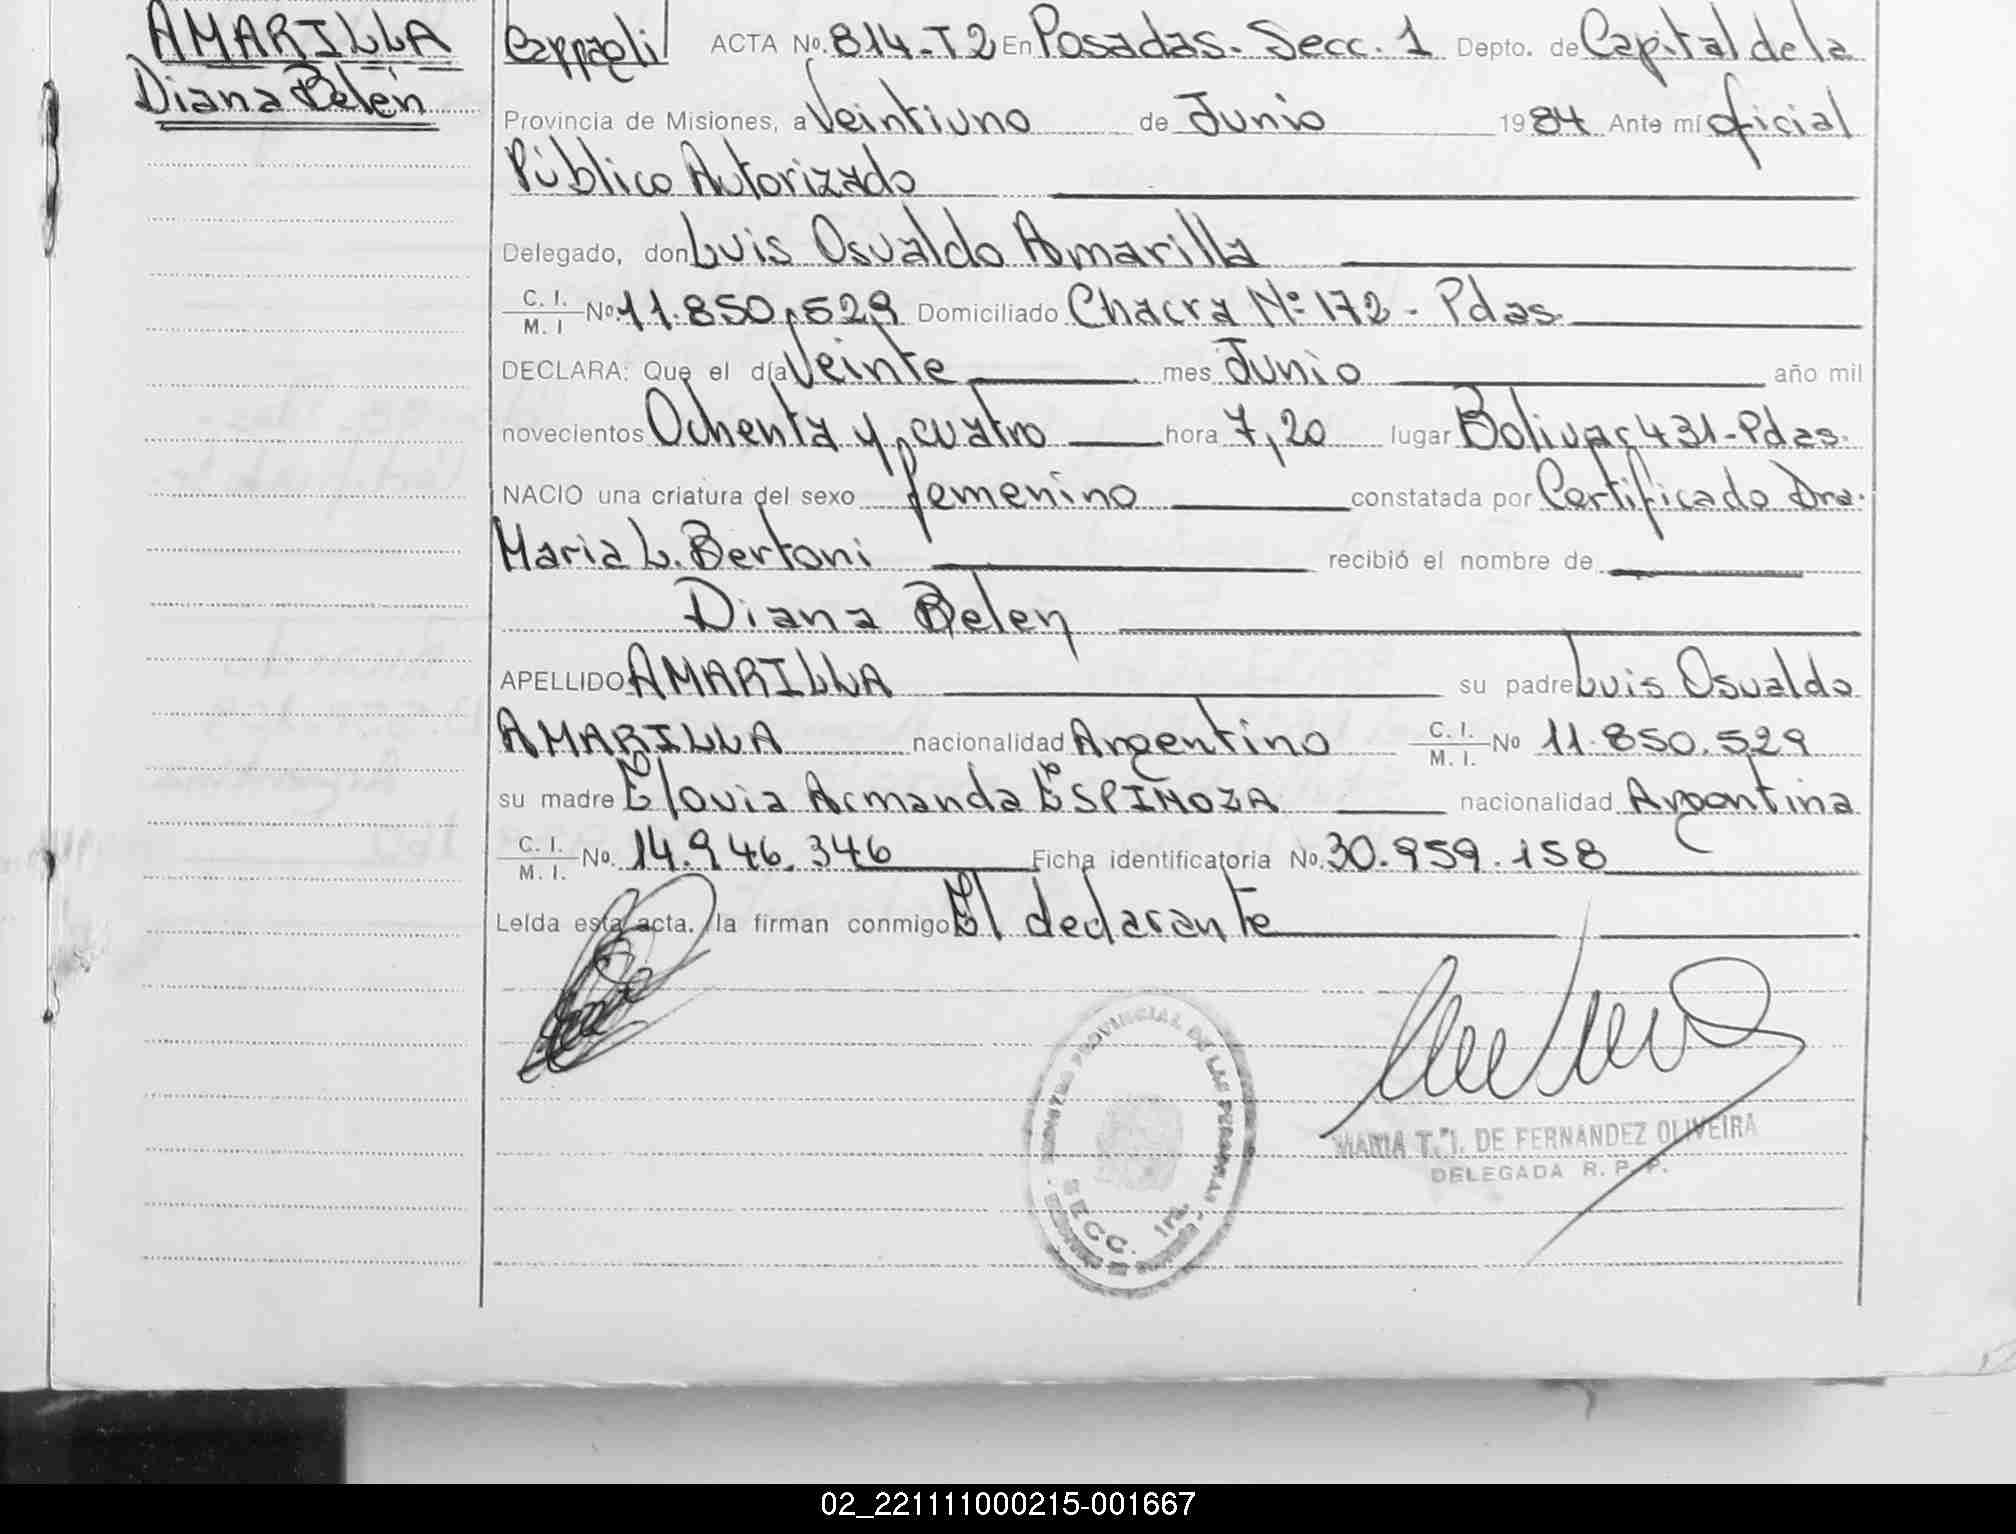 AMARILLA
Diana Belén
Cappaeli ACTA No. 814-T2 En Posadas. Secc. 1 Depto. de Capital de la
Provincia de Misiones, a Veintiuno de Junio 1984 Ante mí oficial
Público Autorizado
Delegado, don Luis Osvaldo Amarilla
C. I. / M. I No. 11.850.529 Domiciliado Chacra Nº 172 - Pdas.
DECLARA: Que el día Veinte mes Junio año mil
novecientos Ochenta y cuatro hora 7,20 lugar Bolivar 431-Pdas.
NACIO una criatura del sexo femenino constatada por Certificado Dra.
Maria L. Bertoni recibió el nombre de
Diana Belen
APELLIDO AMARILLA su padre Luis Osvaldo
AMARILLA nacionalidad Argentino C. I. / M. I. No 11.850.529
su madre Elouia Armanda ESPINOZA nacionalidad Argentina
C. I. / M. I. No. 14.946.346 Ficha identificatoria No. 30.959.158
Leída esta acta. la firman conmigo El declarante
REGISTRO PROVINCIAL DE LAS PERSONAS
SECC. 1ra.
MARIA T. I. DE FERNANDEZ OLIVEIRA
DELEGADA R. P. P.
02_221111000215-001667